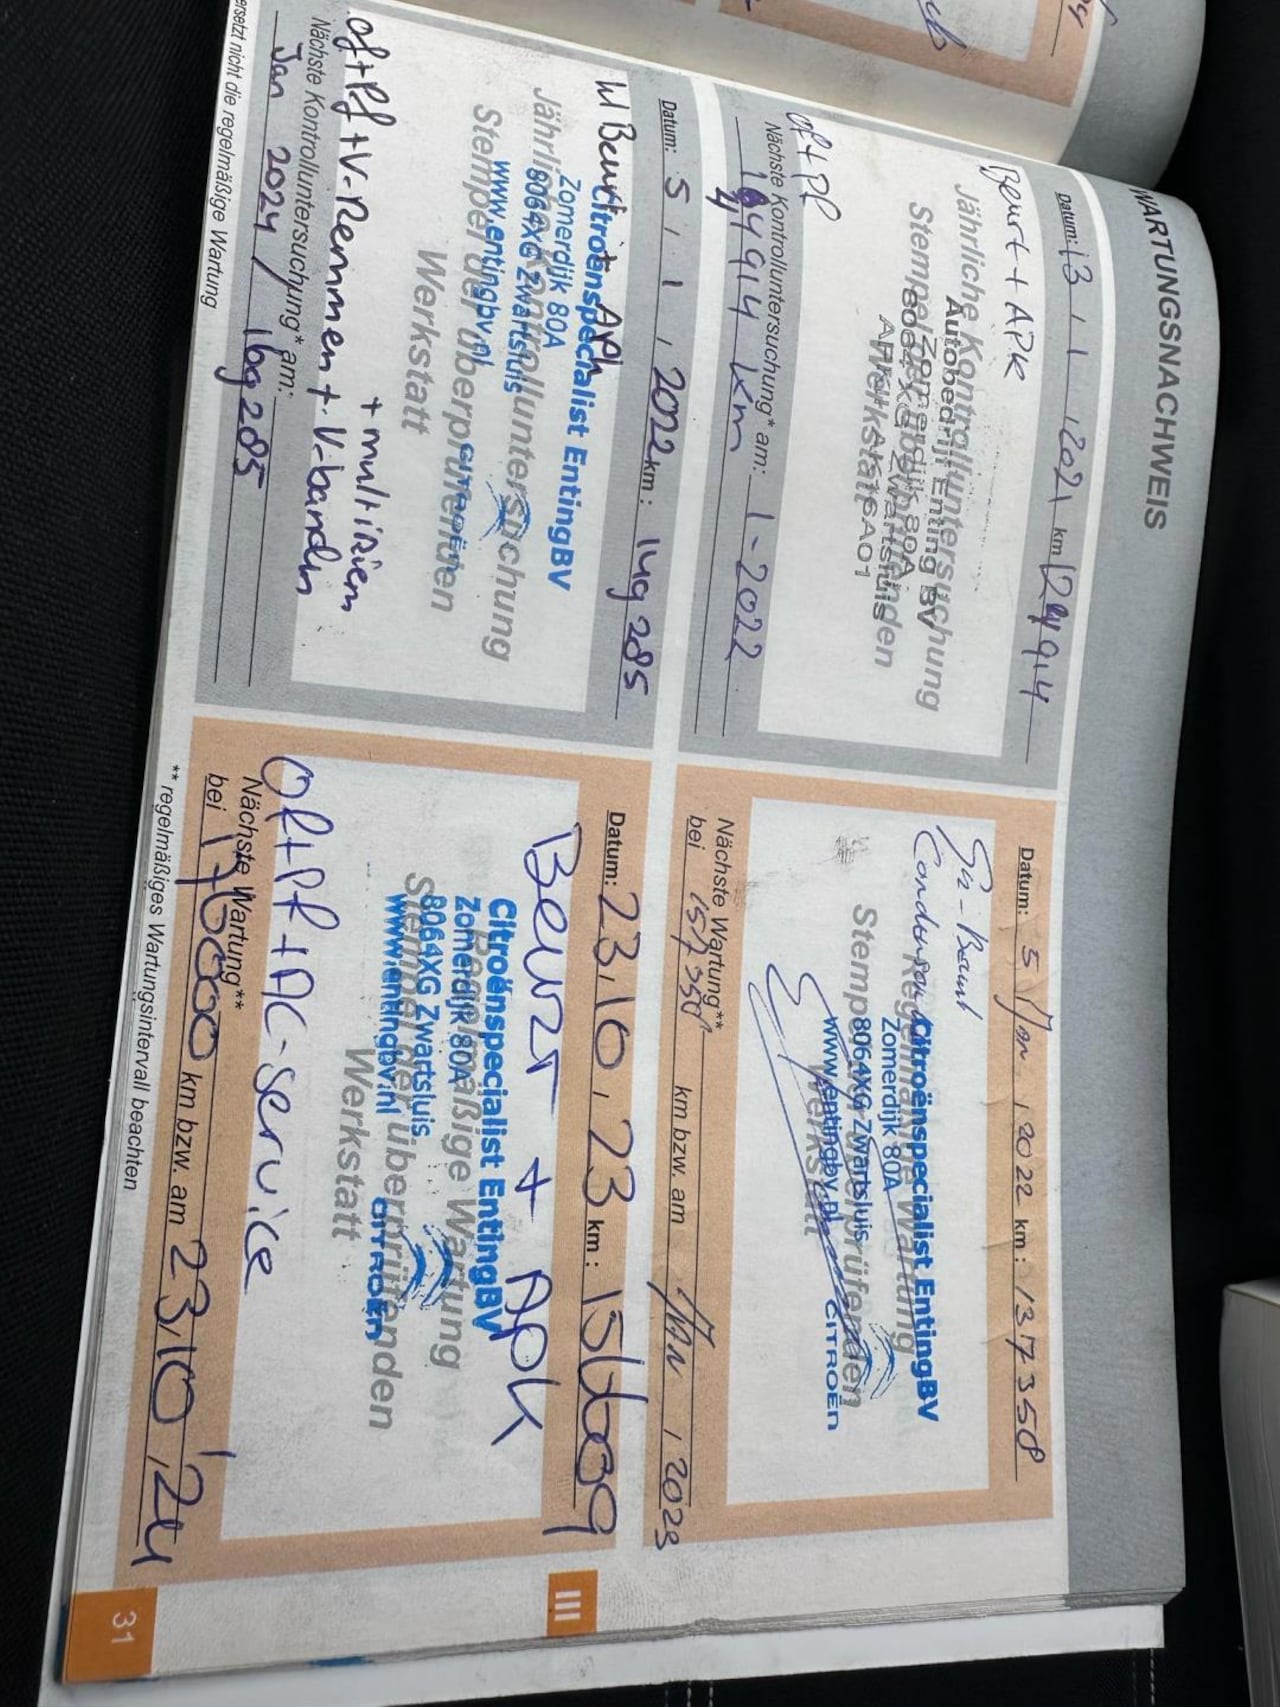 WARTUNGSNACHWEIS
Datum: 13 / 1 / 2021 km 124914
Beurt + APK
Jährliche Kontrolluntersuchung
Autobedrijf Enting BV
Stempel der überprüfenden
Zomerdijk 80A
8064 XG Zwartsluis
Werkstatt
of + pf
Nächste Kontrolluntersuchung* am: 1-2022
144914 km
Datum: 5 / 1 / 2022 km: 149285
Beurt + APK
Citroënspecialist Enting BV
Jährliche Kontrolluntersuchung
Zomerdijk 80A
8064XG Zwartsluis
Stempel der überprüfenden
www.entingbv.nl
CITROËN
Werkstatt
+ multiriem
of + pf + V-Remmen + V-banden
Nächste Kontrolluntersuchung* am:
Jan 2024 / 169285
ersetzt nicht die regelmäßige Wartung
Datum: 5 / Jan / 2022 km: 137358
Gr-Beurt
Citroënspecialist Enting BV
Regelmäßige Wartung
Zomerdijk 80A
8064XG Zwartsluis
Stempel der überprüfenden
www.entingbv.nl
CITROËN
Werkstatt
Nächste Wartung**
bei 157358 km bzw. am Jan / 2023
Datum: 23/10/23 km: 151609
Beurt + APK
Citroënspecialist Enting BV
Regelmäßige Wartung
Zomerdijk 80A
8064XG Zwartsluis
Stempel der überprüfenden
www.entingbv.nl
CITROËN
Werkstatt
of + pf + AC-service
Nächste Wartung**
bei 176000 km bzw. am 23/10/'24
** regelmäßiges Wartungsintervall beachten
III
31